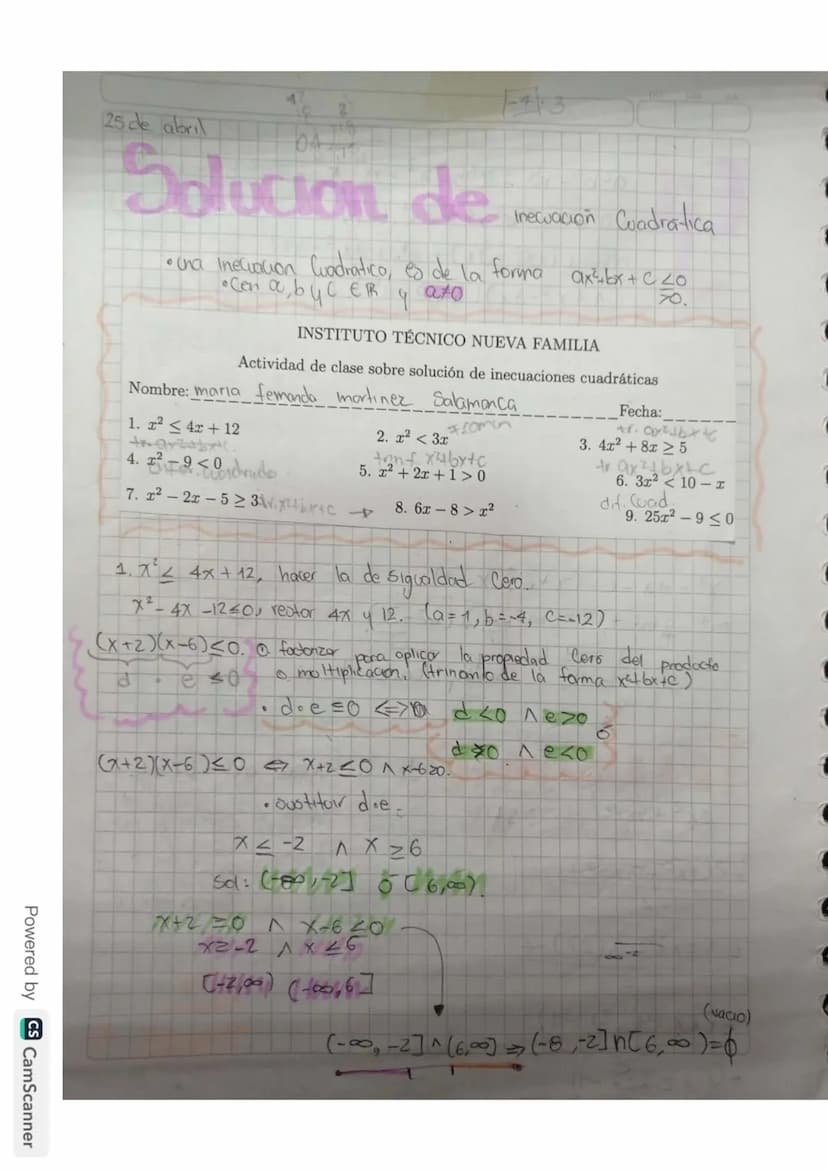 25 de abril
Solucion de inecuación Cuadratica
• una inecuacion Cuadratica, es de la forma ax²+bx+c ≤0
≥0.
• Con a, b y C ∈ ℝ y a≠0
INSTITUTO TÉCNICO NUEVA FAMILIA
Actividad de clase sobre solución de inecuaciones cuadráticas
Nombre: maria fernanda martinez Salamanca Fecha:
1. x² ≤ 4x + 12
2. x² < 3x
3. 4x² + 8x ≥ 5
tr. ax²+bx+c
4. x² − 9 < 0
5. x² + 2x + 1 > 0
6. 3x² < 10 − x
7. x² − 2x − 5 ≥ 3
8. 6x − 8 > x²
dif. Cuad.
9. 25x² − 9 ≤ 0
1. x² ≤ 4x + 12, hacer la desigualdad Cero.
x² - 4x - 12 ≤ 0, restar 4x y 12. (a=1, b=-4, C=-12)
(x+2)(x-6) ≤ 0. factorizar para aplicar la propiedad Cero del producto
d · e ≤ 0 o multiplicacion. (trinomio de la forma x²+bx+c)
• d·e ≤ 0 <=> d<0 ∧ e>0
ó
∧ e<0
(x+2)(x-6) ≤ 0 ⇔ x+2 ≤ 0 ∧ x-6≥0.
• sustituir d·e.
x ≤ -2 ∧ x ≥ 6
Sol: (-∞, -2] ó [6, ∞).
x+2 ≥ 0 ∧ x-6 ≤ 0
x ≥ -2 ∧ x ≤ 6
[-2, ∞) (-∞, 6]
(vacio)
(-∞, -2] ∧ [6, ∞] ⇒ (-8, -2] ∩ [6, ∞) = ϕ
Powered by CS CamScanner